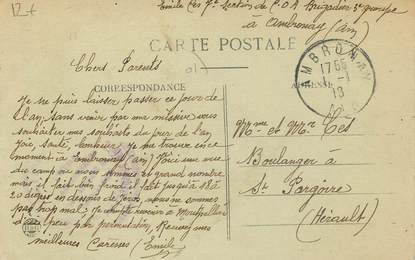 Emile Ces 7e Section de C.O.A Brigadier 3e groupe
à Ambronay (Ain)
CARTE POSTALE
Chers Parents
CORRESPONDANCE
AMBRONAY
1-1
18
Je ne puis laisser passer ce jour de
l'an sans venir par ma missive vous
souhaiter mes souhaits du jour de l'an
Joie, Santé, bonheur. Je me trouve en ce
moment à Ambronay (Ain) Voici une vue
du camp ou nous sommes en grand nombre
mais il fait bien froid il fait jusqu'à 18 à
20 degrés en dessous de zéro, nous ne sommes
pas trop mal. Je compte revenir à Montpellier
d'ici peu par permutation, Recevez mes
meilleures Caresses (Emile)
Mme et Mr Ces
Boulanger à
St Pargoire
(Hérault)